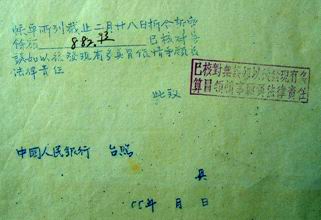 帐单所列截止二月廿八日折合新币
余额 883.73 已核对无
误如以后发现有多具良情事愿负
法律责任
此致
已核对无误如以后发现有多
算冒领情事愿负法律责任
中国人民银行 台照
具
55年 月 日